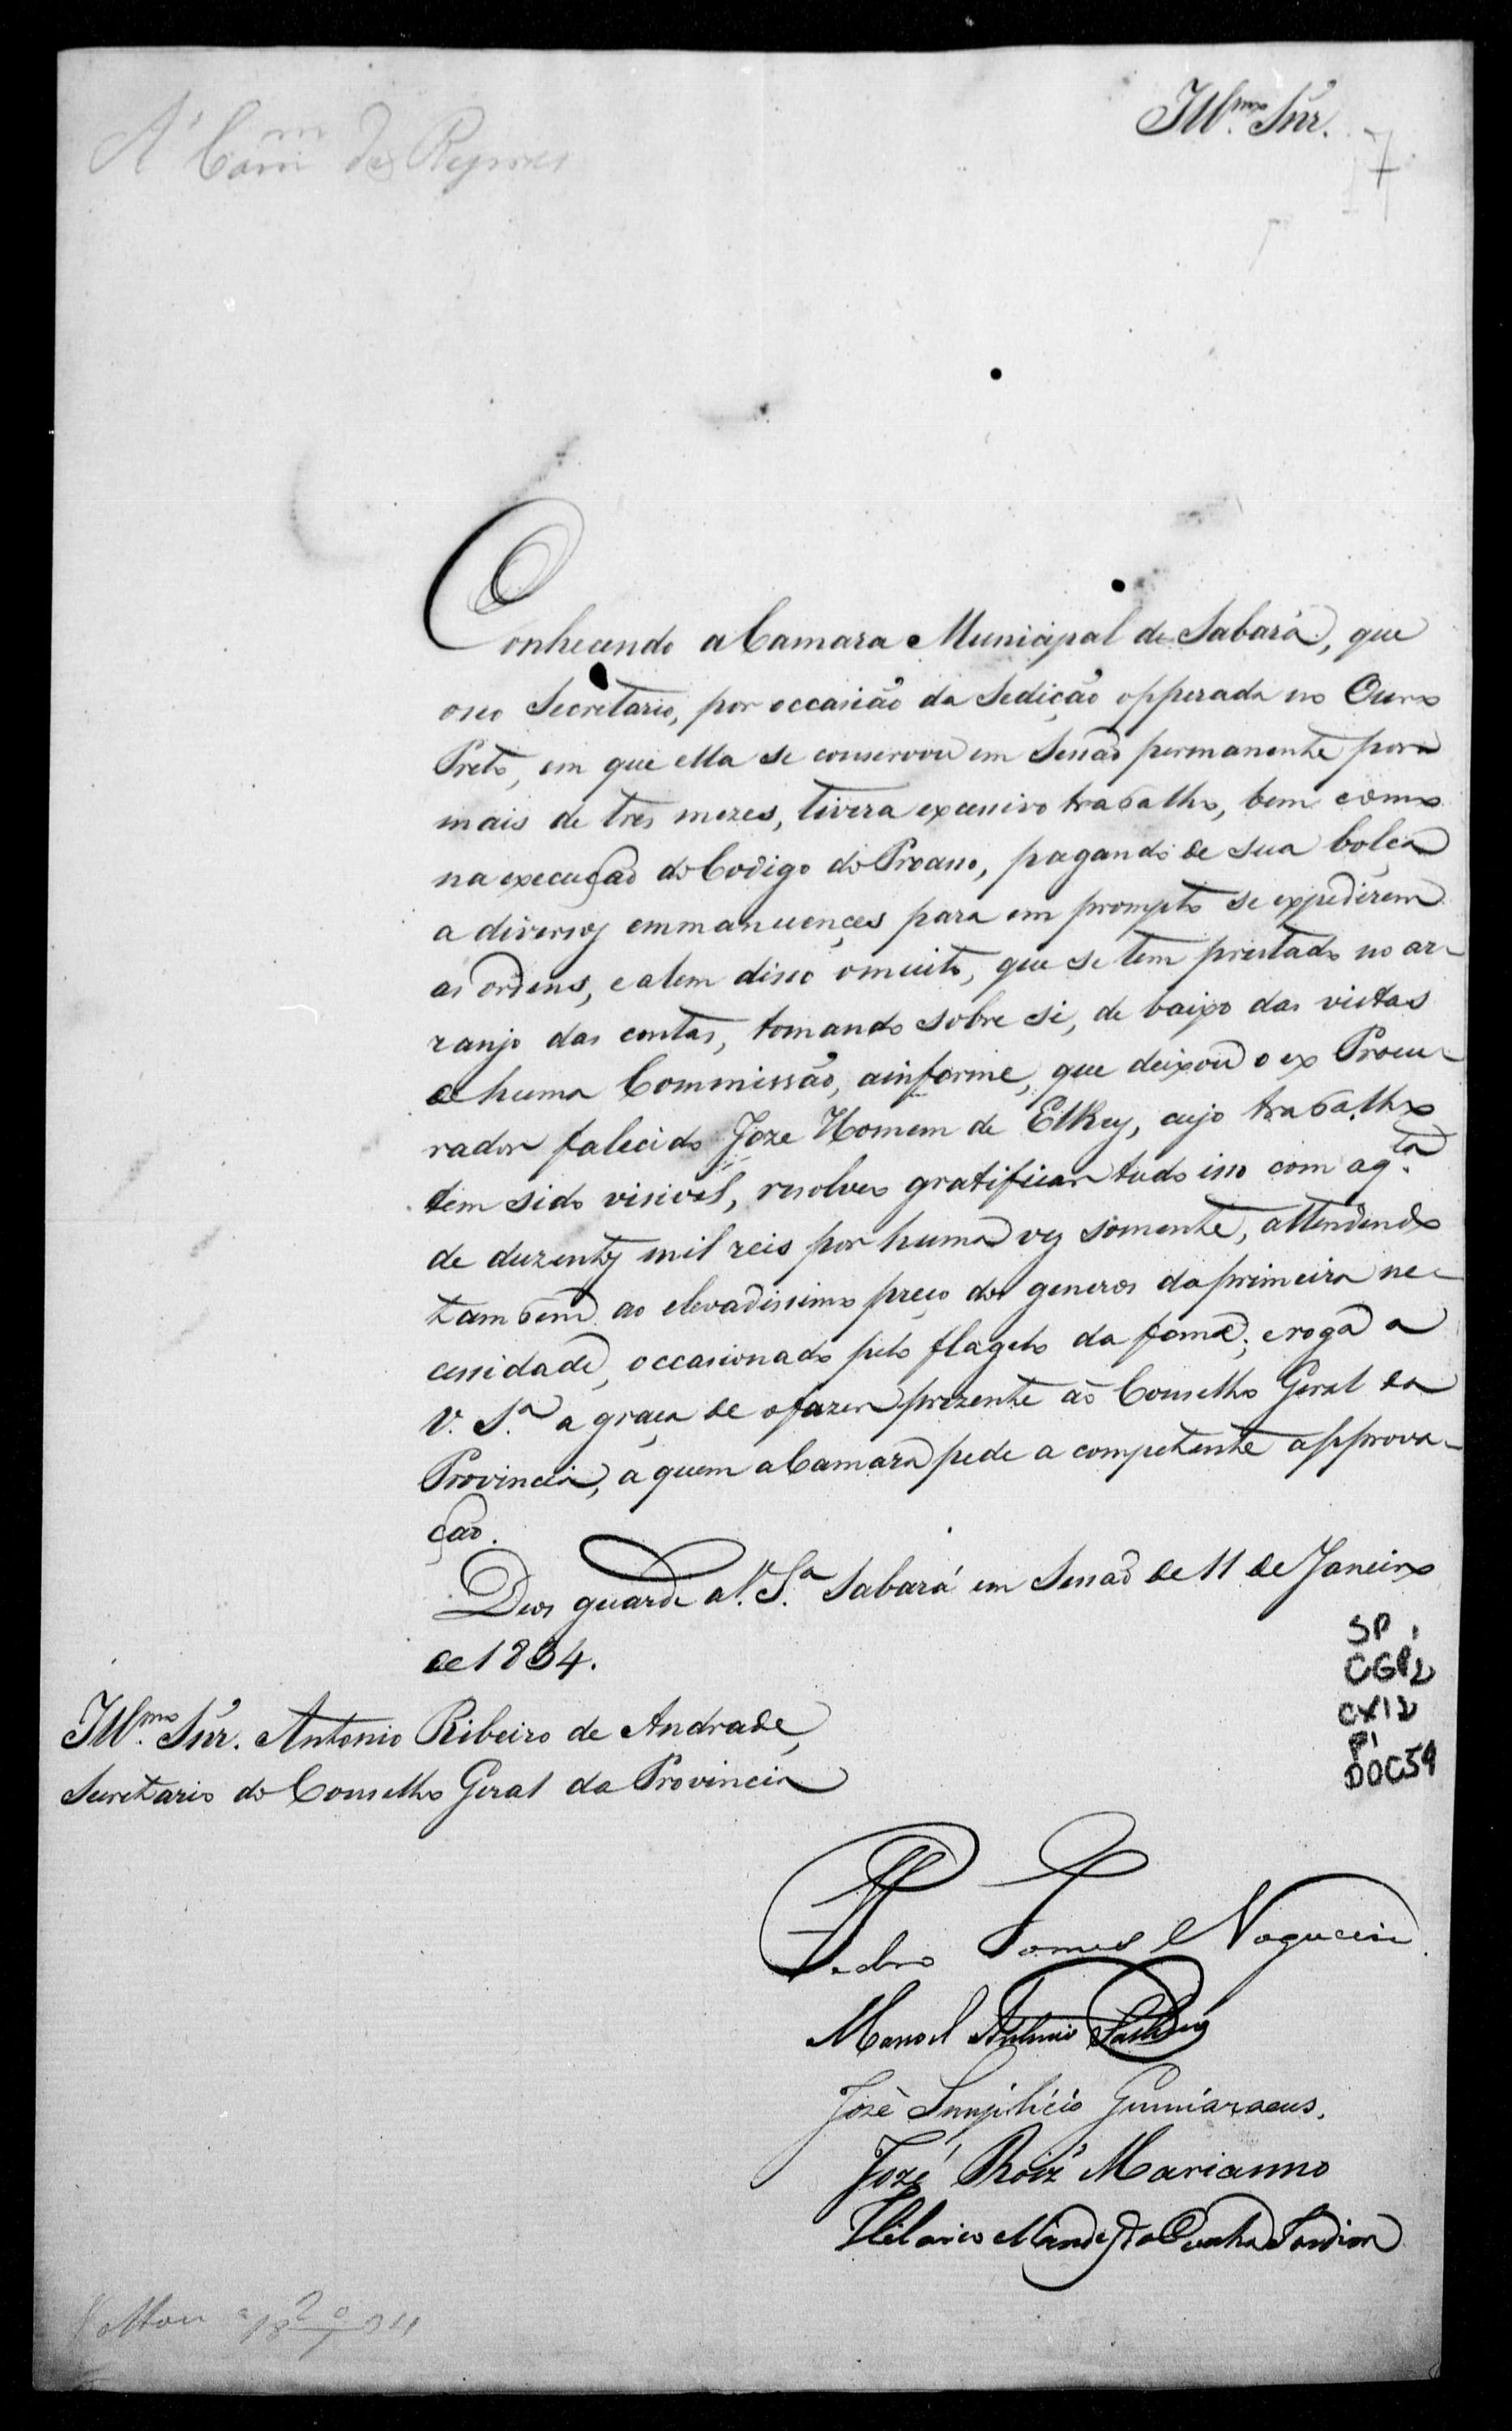 A' Com.m de
Ill.mo Snr.
Conhecendo a Camara Municipal de Sabará, que
o seo Secretario, por occasião da Sedição opperada no Ouro
Preto, em que ella se conservou em Sessão permanente por
mais de tres mezes, tivera excessivo trabalho, bem como
na execução do Codigo do Processo, pagando de sua bolça
a diversos emmanuençes para em prompto se expedirem
as ordens, e alem disso o muito, que se tem prestado no ar-
ranjo das contas, tomando sobre si, de baixo das vistas
de huma Commissão, a informe, que deixou o ex Procu-
rador falecido Joze Homem de, cujo trabalho
tem sido visivel, resolveo gratificar tudo isso com a q.ta
de duzentos mil reis por huma vez somente, attendendo
tambem ao elevadissimo preço dos generos da primeira ne-
cessidade, occasionado pelo flagelo da fome; e roga a
V. S.a a graça de o fazer prezente ao Conselho Geral da
Provincia, a quem a Camara pede a competente approva-
ção.
Deos guarde a V. S.a Sabará em Sessão de 11 de Janeiro
de 1834.
SP
CGP2
CX12
P1
DOC59
Ill.mo Snr. Antonio Ribeiro de Andrade,
Secretario do Conselho Geral da Provincia
Pedro Gomes Nogueira
Manoel Antonio
José Simplicio Guimaraens.
Jozé Roiz' Marianno
Hilario Mendes da Cunha Jardim